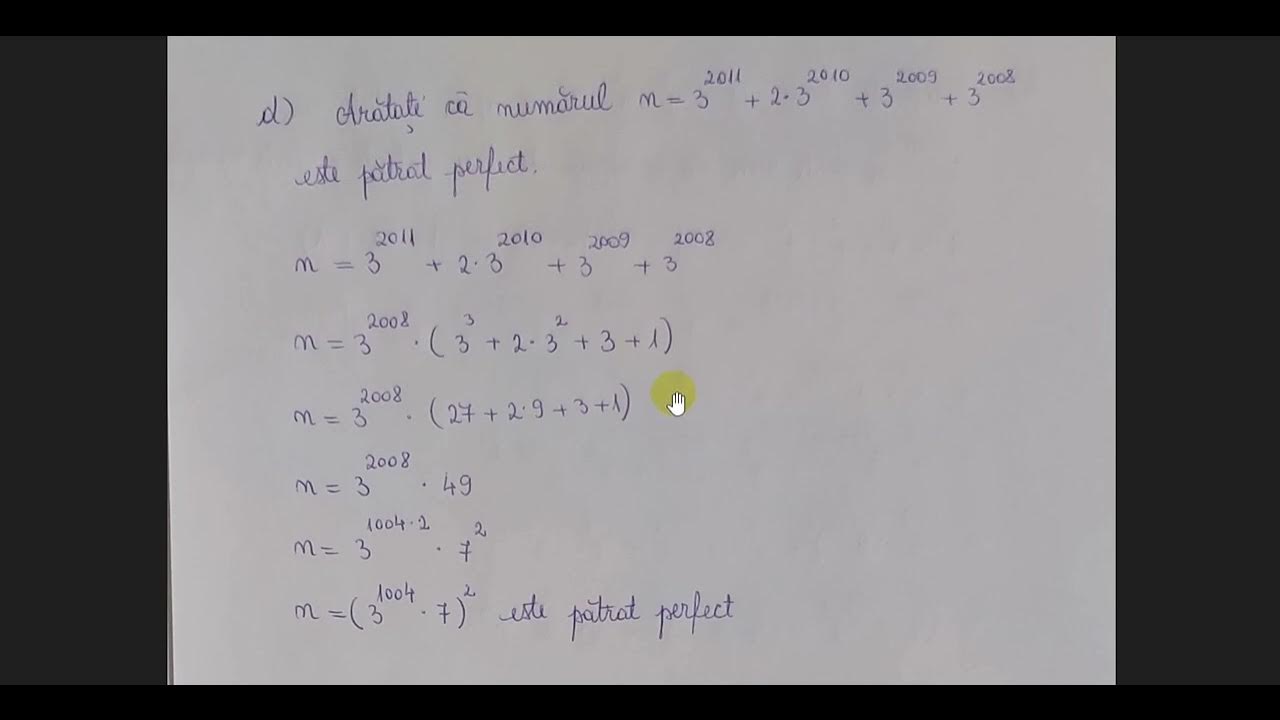 d) Arătați că numărul n = 3^2011 + 2·3^2010 + 3^2009 + 3^2008
este pătrat perfect.
n = 3^2011 + 2·3^2010 + 3^2009 + 3^2008
n = 3^2008 · (3^3 + 2·3^2 + 3 + 1)
n = 3^2008 · (27 + 2·9 + 3 + 1)
n = 3^2008 · 49
n = 3^1004·2 · 7^2
n = (3^1004 · 7)^2 este pătrat perfect